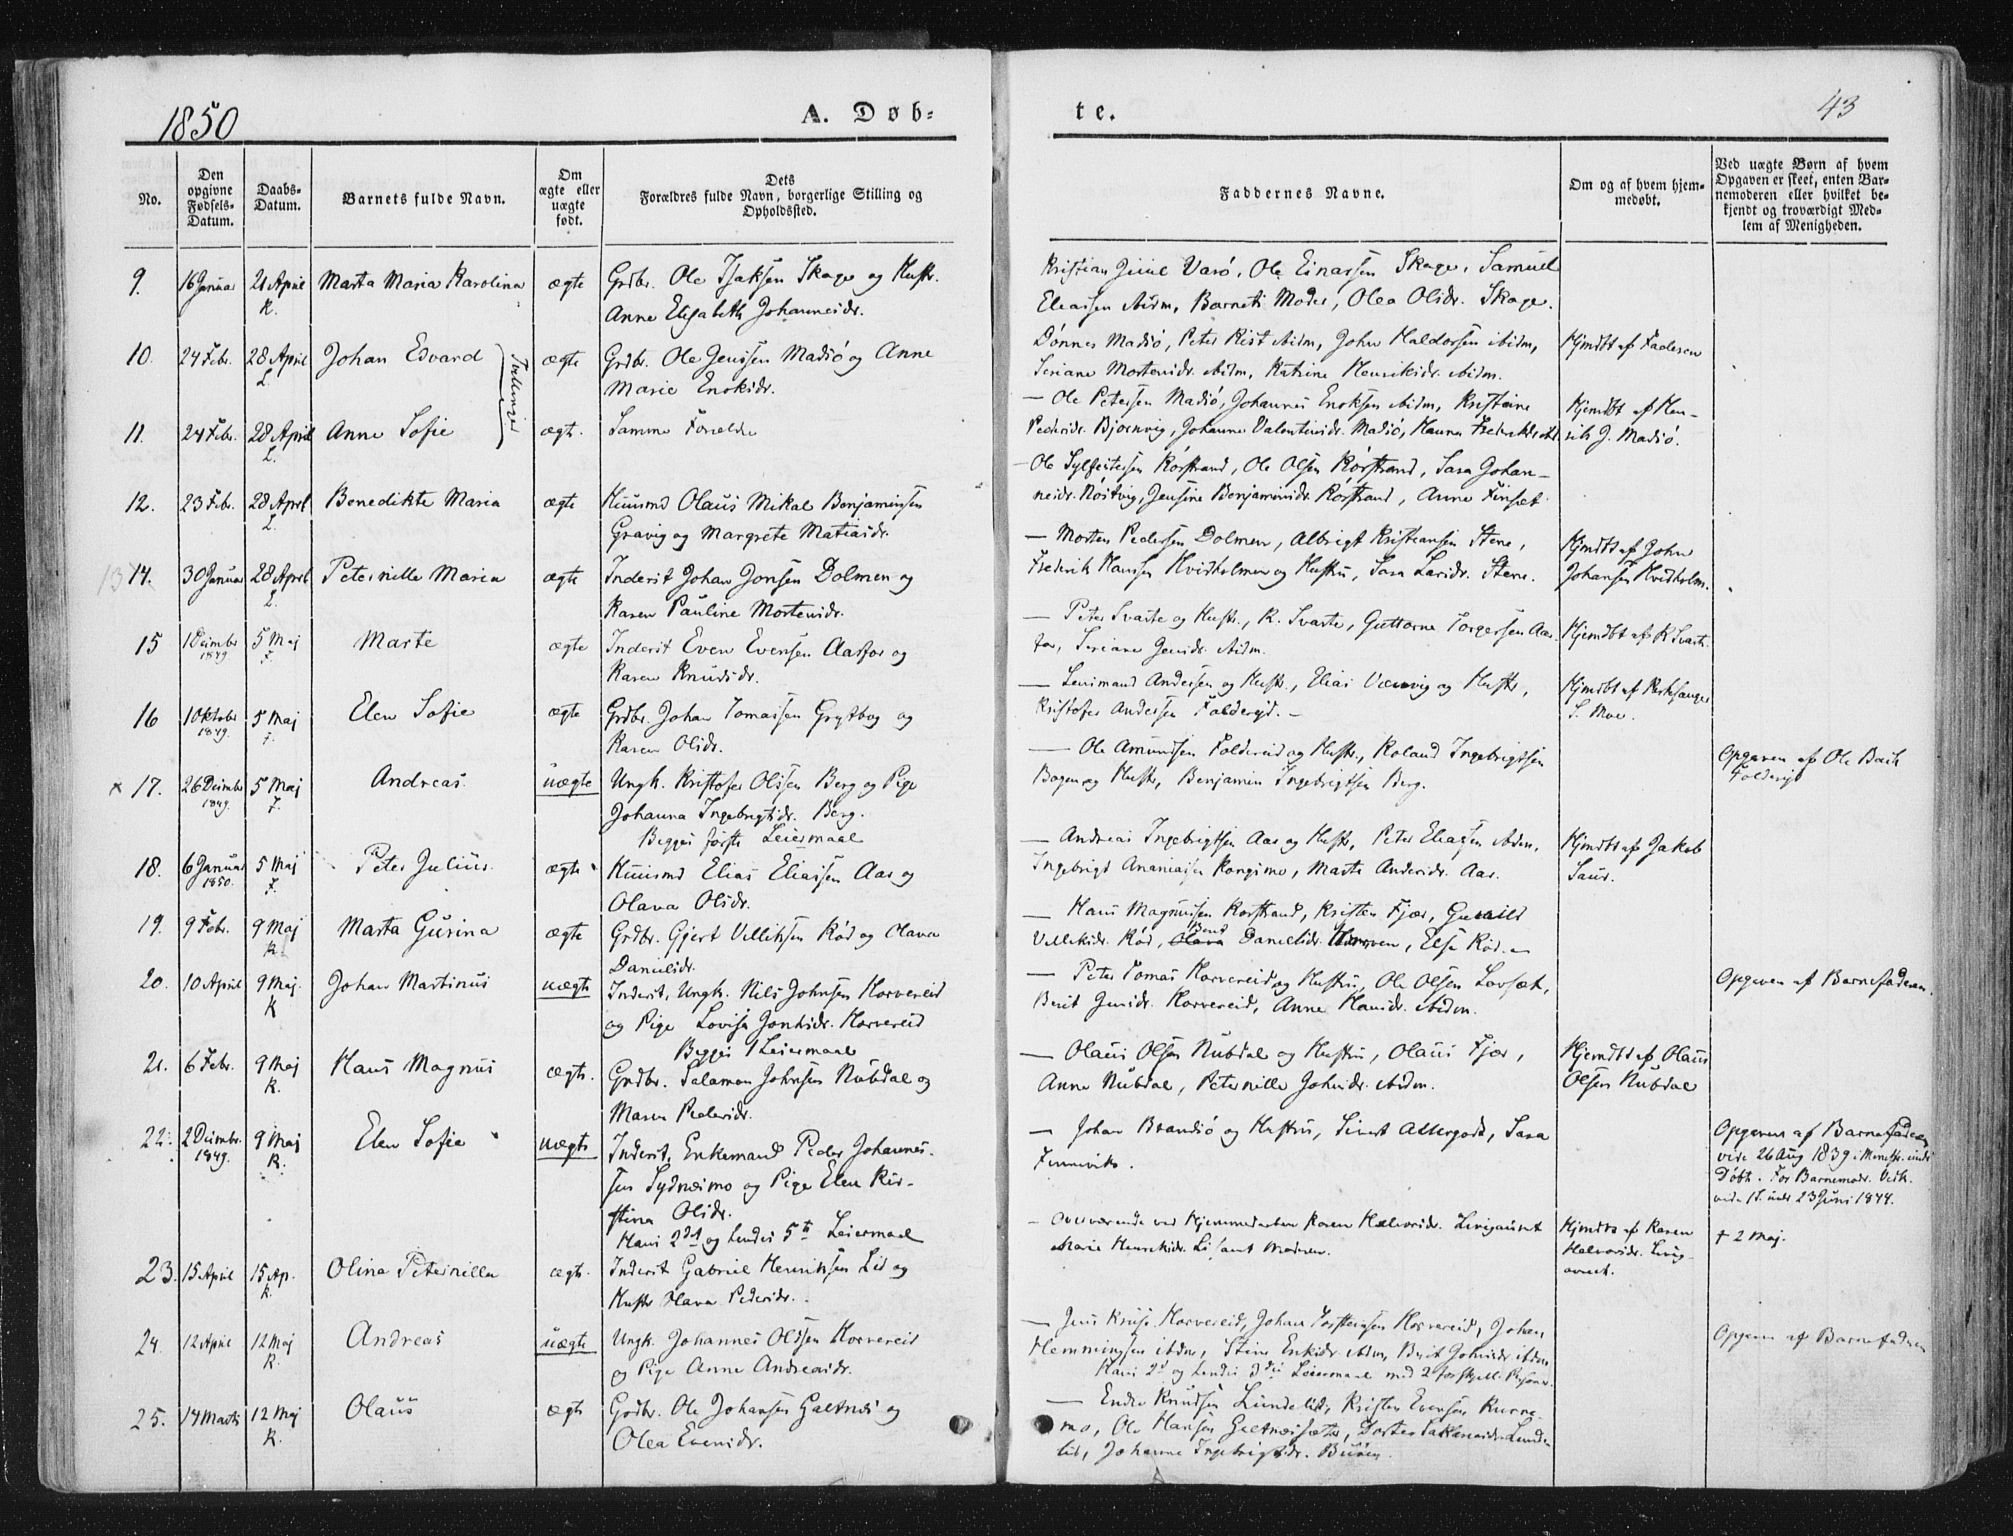 1850
A. Døb-
te.
43
No.
Den opgivne Fødsels-Datum.
Daabs-Datum.
Barnets fulde Navn.
Om ægte eller uægte født.
Dets Forældres fulde Navn, borgerlige Stilling og Opholdssted.
Faddernes Navne.
Om og af hvem hjem-medøbt.
Ved uægte Børn af hvem Opgaven er skeet, enten Bar-nemoderen eller hvilket be-kjendt og troværdigt Med-lem af Menigheden.
9. 16 Januar 21 April Marta Maria Karolina ægte Grdbr. Ole Isaksen Skage og Hustr.
K. Anne Elisabeth Johannesdr.
Kristian Juul Varø, Ole Einarsen Skage, Samuel
Eleasen ibidm, Barnets Moder, Olea Olsdr. Skage.
10. 24 Febr. 28 April Johan Edvard ægte Grdbr. Ole Jenssen Madsø og Anne
L. Tvillinger Marie Enoksdr.
Dønnes Madsø, Peter Kist ibidm, John Haldorsen ibidm,
Seriane Mortensdr. ibidm, Katrine Henriksdr. ibidm.
Hjmdbt af Faderen
11. 24 Febr. 28 April Anne Sofie ægte. Samme Forældre
L.
— Ole Petersen Madsø, Johannes Enoksen ibidm, Kristine
Pedersdr. Bjørnvig, Johanne Valentinsdr. Madsø, Hanna Frederiksdr ibd
Hjemdbt af Hen-
rik J. Madsø.
12. 23 Febr. 28 April Benedikte Maria ægte Huusmd Olaus Mikal Benjaminsen
L. Gravig og Margrete Matiasdr.
— Ole Sylfestersen Rørstrand, Ole Olsen Rørstrand, Sara Johan-
nesdr. Røitvig, Jensine Benjaminsdr. Rørstrand, Anne Finsæt.
13 14. 30 Januar 28 April Peternille Maria ægte Inderst Johan Jonsen Dolmen og
L. Karen Pauline Mortensdr.
— Morten Pedersen Dolmen, Albrigt Kristiansen Stene,
Frederik Hansen Hvidholmen og Hustru, Sara Larsdr. Stene.
Hjmdbt af John
Johansen Hvidholm.
15 1 Decmbr 5 Maj Marte ægte Inderst Even Evensen Aasfor og
1849 F. Karen Knudsdr.
— Peter Svarte og Hustr., K. Svarte, Guttorm Torgersen Aas-
for, Seriane Jensdr. ibidm.
Hjemdbt af K Svarte.
16 1 Oktobr 5 Maj Elen Sofie ægte Grdbr. Johan Tomassen Grytbog og
1849. F. Karen Olsdr.
— Lensmand Andersen og Hustr., Elias Værvig og Hustr.,
Kristofer Andersen Folderejd. —
Hjmdbt af Kirksanger
S. Moe.
× 17. 26 Decmbr 5 Maj Andreas. uægte Ungk. Kristofer Olssen Berg og Pige
1849. F. Johanna Ingebrigtsdr. Berg.
Begges første Leiermaal
— Ole Amundsen Foldereid og Hustr, Roland Ingebrigtsen
Bogen og Hustr, Benjamin Ingebrigtsen Berg.
Opgaven af Ole Bach
Folderejd
18. 6 Januar 5 Maj Peter Julius. ægte Huusmd Elias Eliassen Aas og
1850. F. Olava Olsdr.
— Andreas Ingebrigtsen Aas og Hustr, Peter Eliassen ibdm,
Ingebrigt Ananiassen Kongsmo, Marte Andersdr. Aas.
Hjmdbt af Jakob
Saur.
19. 9 Febr. 9 Maj Marta Gurina ægte Grdbr. Gjert Villiksen Rød og Olava
K. Danielsdr.
— Hans Magnussen Rørstrand, Kristen Fjær, Gunild
Villiksdr. Rød, Olava Berit Danielsdr. , Else Rød. —
20. 10 April 9 Maj. Johan Martinus uægte Inderst, Ungk. Nils Johnsen Horvereid
K og Pige Lovise Jonksdr. Horvereid
Begges 1 Leiermaal
— Peter Tomas Horvereid og Hustru, Ole Olsen Lovsæt,
Berit Jensdr. Horvereid, Anne Hansdr. ibidm.
Opgiven af Barnefaderen.
21. 6 Febr. 9 Maj Hans Magnus ægte. Grdbr. Salamon Johnsen Nubdal og
K. Maren Pedersdr.
— Olaus Olsen Nubdal og Hustru, Olaus Fjær,
Anne Nubdal, Peternille Johnsdr. ibidm.
Hjemdbt af Olaus
Olsen Nubdal
22. 2 Decmbr. 9 Maj Elen Sofie uægte Inderst, Enkemand Peder Johannes-
1849. K. sen Sydneimo og Pige Elen Kir-
stina Olsdr.
Hans 2det og hendes 5te Leiermaal
— Johan Brandsø og Hustru, Sivert Altergodt, Sara
Finneviks.
Opgaven af Barnefaderen
vide 26 Aug 1839 i Minstpr. under
Døbt. For Barnemodr. Vedk.
vide 1L under 23 Juni 1844.
23. 15 April 15 Ap. Olina Peternilla ægte. Inderst Gabriel Henriksen Lid og
K. Hustr Olava Pedersdr.
— Overværende ved Hjemmedaaben Karen Halvorsdr. Livigaunet
Marie Henriksdr. Li samt Moderen.
Hjmdbt af Karen
Halvorsdr. Livig-
aunet.
† 2 Maj.
24. 12 April 12 Maj Andreas uægte Ungk. Johannes Olssen Horvereid
K. og Pige Anne Andreasdr.
— Jens Kruse Horvereid, Johan Torstensen Horvereid, Johan
Hemmingsen ibdm, Stine Eriksdr. ibdm, Berit Johnsdr. ibdm.
Hans 2d og hendes 3die Leiermaal med 2 forskjell. Personer.
Opgiven af Barnefaderen
25. 14 Marts 12 Maj Olaus ægte Grdbr. Ole Johansen Galtnæs og
K. Olea Evensdr.
— Endre Knudsen Lundelid, Kristen Evensen Kurne-
mo, Ole Hansen Galtnæssæter, Dorte Sakariasdr. Lunde-
lid, Johanna Ingebrigtsdr. Buøen.